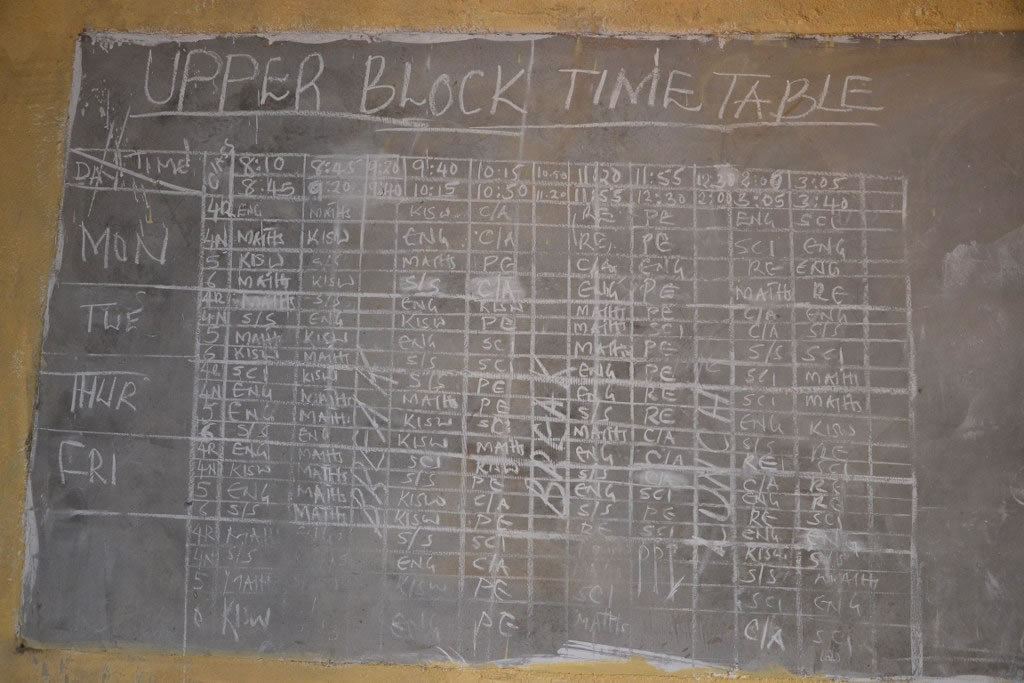 UPPER BLOCK TIME TABLE
DAY TIME 8:10 8:45 9:20 9:40 10:15 10:50 11:20 11:55 12:30 2:00 3:05
8.45 9:20 9:40 10:15 10:50 11.20 11:55 12:30 2:00 3:05 3:40
4R ENG MATHS KISW C/A RE PE ENG SCI
MON 4N MATHS KISW ENG C/A RE PE SCI ENG
5 KISW S/S MATHS PE C/A ENG RE ENG
6 MATHS KISW S/S C/A ENG PE MATHS RE
4R MATHS S/S ENG KISW MATHS PE C/A ENG
TUE 4N S/S ENG KISW PE MATHS SCI C/A S/S
5 MATHS KISW ENG SC MATHS PE S/S SCI
6 KISW MATHS S/S SCI ENG PE SCI MATHS
4R SCI KISW S/S PE MATHS RE SCI MATHS
THUR 4N ENG MATHS MATHS PE S/S RE ENG KISW
5 ENG MATHS KISW SC MATHS C/A S/S RE
6 S/S ENG KISW MATHS ENG C/A RE SCI
FRI 4R ENG MATHS SCI KISW S/S C/A C/A RE
4N KISW MATHS S/S PE ENG SCI ENG RE
5 ENG MATHS KISW C/A S/S PE RE SCI
6 S/S MATHS KISW PE PE SCI ENG
4R S/S SCI KISW S/S
4N S/S ENG C/A PPI S/S MATHS
5 MATHS KISW PE SCI SCI ENG
KISW ENG PE MATHS C/A SCI
BREAK
BREAK
LUNCH